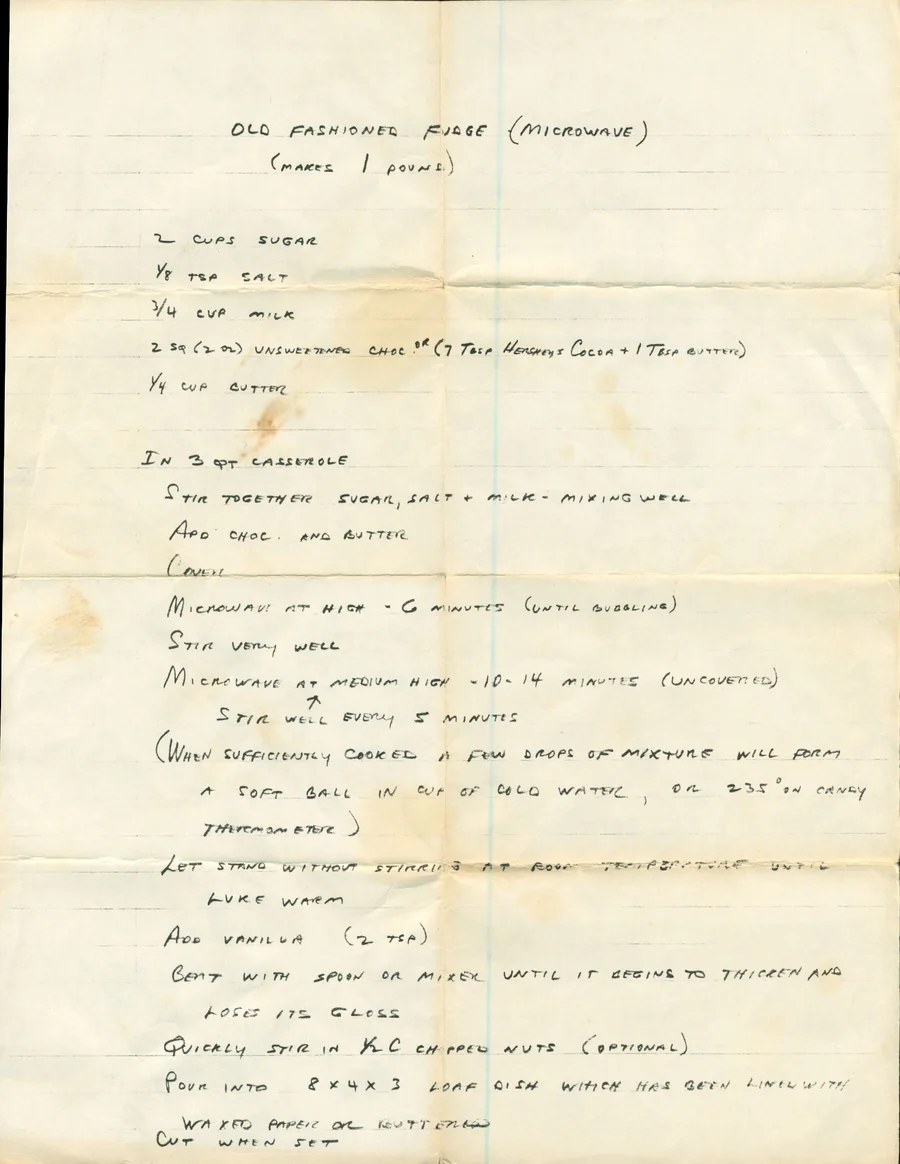 OLD FASHIONED FUDGE (MICROWAVE)
(MAKES 1 POUND)
2 CUPS SUGAR
1/8 TSP SALT
3/4 CUP MILK
2 SQ (2 OZ) UNSWEETENED CHOC. OR (7 TBSP HERSHEYS COCOA + 1 TBSP BUTTER)
1/4 CUP BUTTER
IN 3 QT CASSEROLE
STIR TOGETHER SUGAR, SALT + MILK - MIXING WELL
ADD CHOC. AND BUTTER
COVER
MICROWAVE AT HIGH - 6 MINUTES (UNTIL BUBBLING)
STIR VERY WELL
MICROWAVE AT MEDIUM HIGH - 10 - 14 MINUTES (UNCOVERED)
↑
STIR WELL EVERY 5 MINUTES
(WHEN SUFFICIENTLY COOKED A FEW DROPS OF MIXTURE WILL FORM
A SOFT BALL IN CUP OF COLD WATER, OR 235° ON CANDY
THERMOMETER)
LET STAND WITHOUT STIRRING AT ROOM TEMPERATURE UNTIL
LUKE WARM
ADD VANILLA (2 TSP)
BEAT WITH SPOON OR MIXER UNTIL IT BEGINS TO THICKEN AND
LOSES ITS GLOSS
QUICKLY STIR IN 1/2 C CHIPPED NUTS (OPTIONAL)
POUR INTO 8 X 4 X 3 LOAF DISH WHICH HAS BEEN LINED WITH
WAXED PAPER OR BUTTERED
CUT WHEN SET